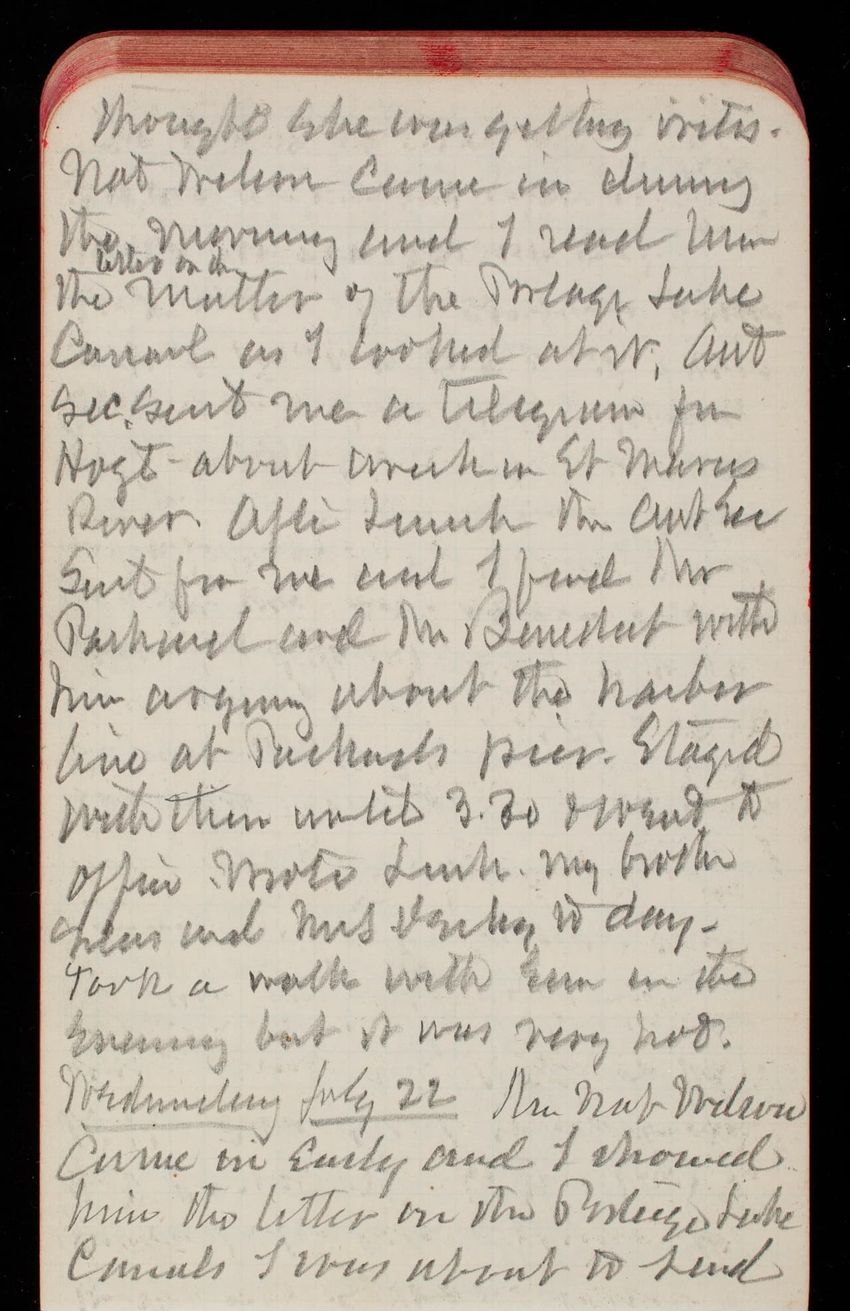 thought she was getting iritis.
Nat Wilson came in during
the morning and I read him
letter on the
the matter of the Portage Lake
Canal as I looked at it. Act
Sec. sent me a telegram for
Hoyt about work in St Marys
River. After lunch the Act Sec
sent for me and I found Mr
Packard and Mr Benedict with
him arguing about the harbor
line at Packards pier. Stayed
with them until 3.30 & went to
office. Wrote Link. my brother
and Mrs to day.
Took a walk with Em in the
Evening but it was very hot.
Wednesday July 22 Mr Nat Wilson
Came in Early and I showed
him the letter on the Portage Lake
Canals I was about to send